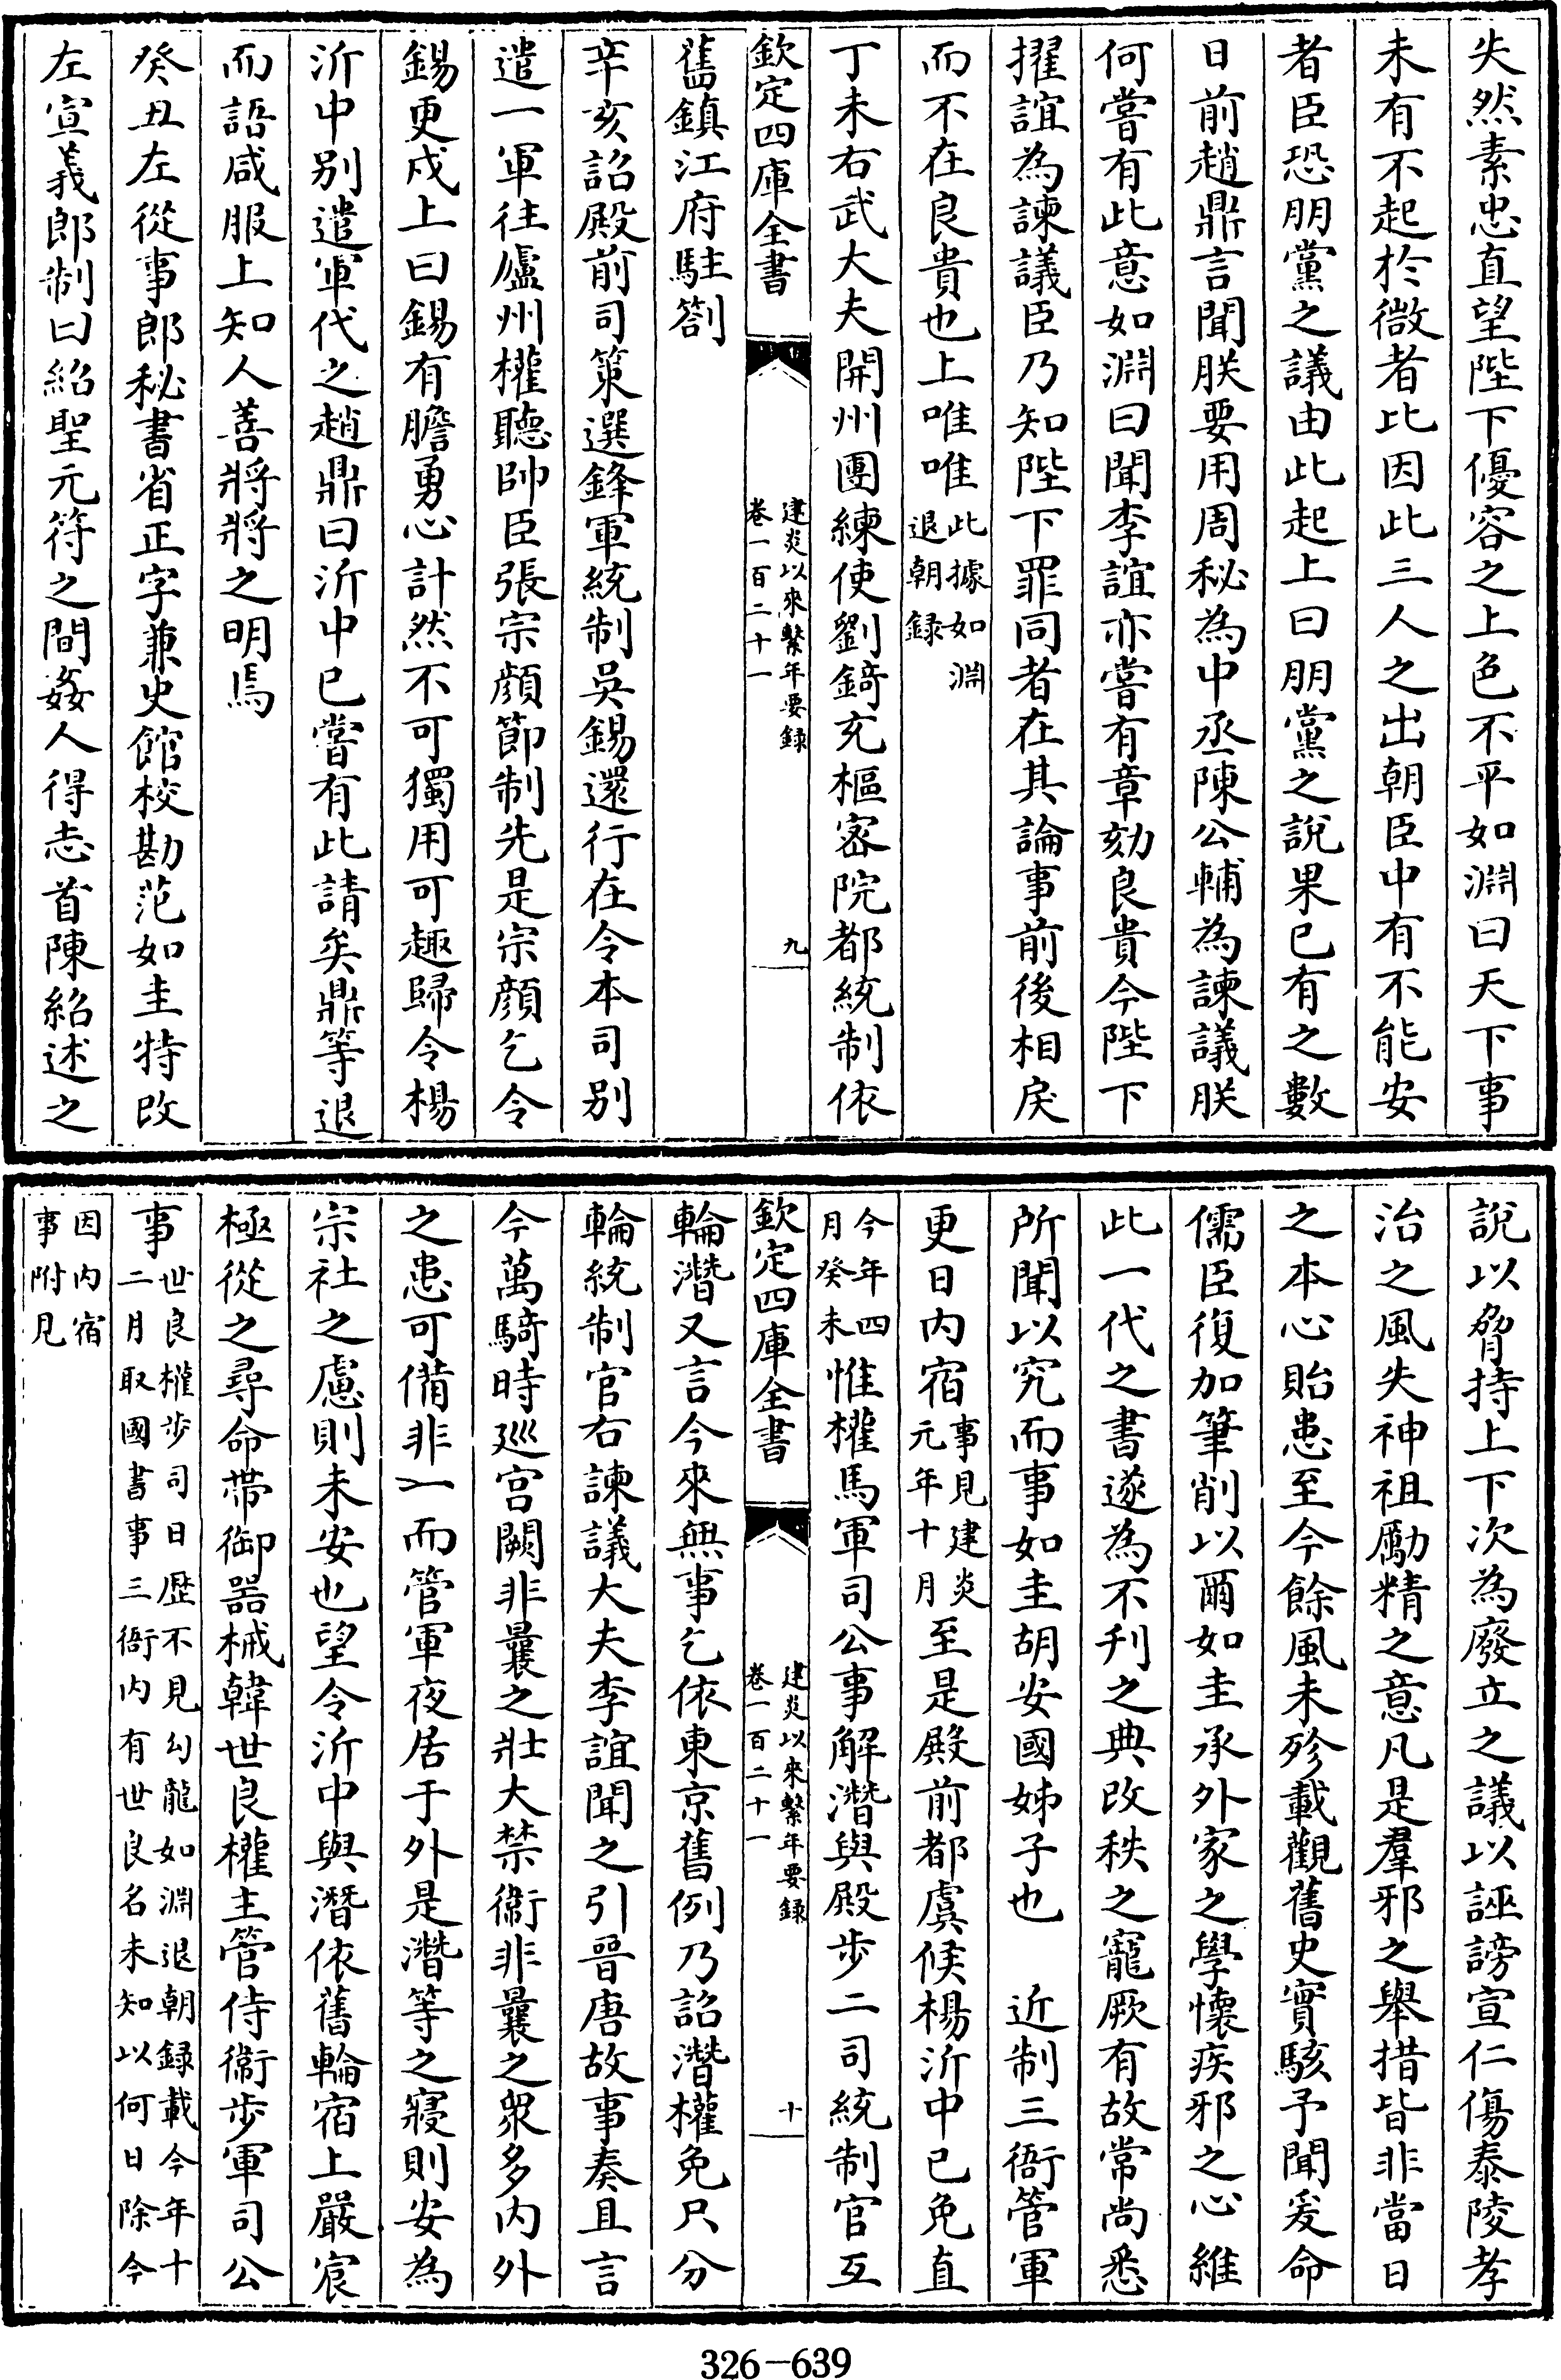 失然素忠直望陛下優容之上色不平如淵曰天下事
未有不起於微者比因此三人之出朝臣中有不能安
者臣恐朋黨之議由此起上曰朋黨之說果已有之數
日前趙鼎言聞朕要用周秘為中丞陳公輔為諫議朕
何嘗有此意如淵曰聞李誼亦嘗有章劾良貴今陛下
擢誼為諫議臣乃知陛下罪同者在其論事前後相戾
而不在良貴也上唯唯此據如淵退朝録
丁未右武大夫開州團練使劉錡充樞密院都統制依
欽定四庫全書 建炎以來繫年要録 卷一百二十一 九
舊鎮江府駐劄
辛亥詔殿前司策選鋒軍統制吳錫還行在令本司别
遣一軍往廬州權聽帥臣張宗顔節制先是宗顔乞令
錫更戍上曰錫有膽勇心計然不可獨用可趣歸令楊
沂中别遣軍代之趙鼎曰沂中已嘗有此請矣鼎等退
而語咸服上知人善將將之明焉
癸丑左從事郎秘書省正字兼史館校勘范如圭特改
左宣義郎制曰紹聖元符之間姦人得志首陳紹述之
說以脅持上下次為廢立之議以誣謗宣仁傷泰陵孝
治之風失神祖勵精之意凡是羣邪之舉措皆非當日
之本心貽患至今餘風未殄載觀舊史實駭予聞爰命
儒臣復加筆削以爾如圭承外家之學懷疾邪之心維
此一代之書遂為不刋之典改秩之寵厥有故常尚悉
所聞以究而事如圭胡安國姊子也 近制三衙管軍
更日内宿事見建炎元年十月至是殿前都虞候楊沂中已免直
今年四月癸未惟權馬軍司公事解潛與殿步二司統制官互
欽定四庫全書 建炎以來繫年要録 卷一百二十一 十
輪潛又言今來無事乞依東京舊例乃詔潛權免只分
輪統制官右諫議大夫李誼聞之引晉唐故事奏且言
今萬騎時巡宫闕非曩之壯大禁衞非曩之衆多内外
之患可備非一而管軍夜居于外是潛等之寢則安為
宗社之慮則未安也望令沂中與潛依舊輪宿上嚴宸
極從之尋命帶御器械韓世良權主管侍衞步軍司公
事世良權步司日歴不見勾龍如淵退朝録載今年十二月取國書事三衙内有世良名未知以何日除今
因内宿事附見
326-639